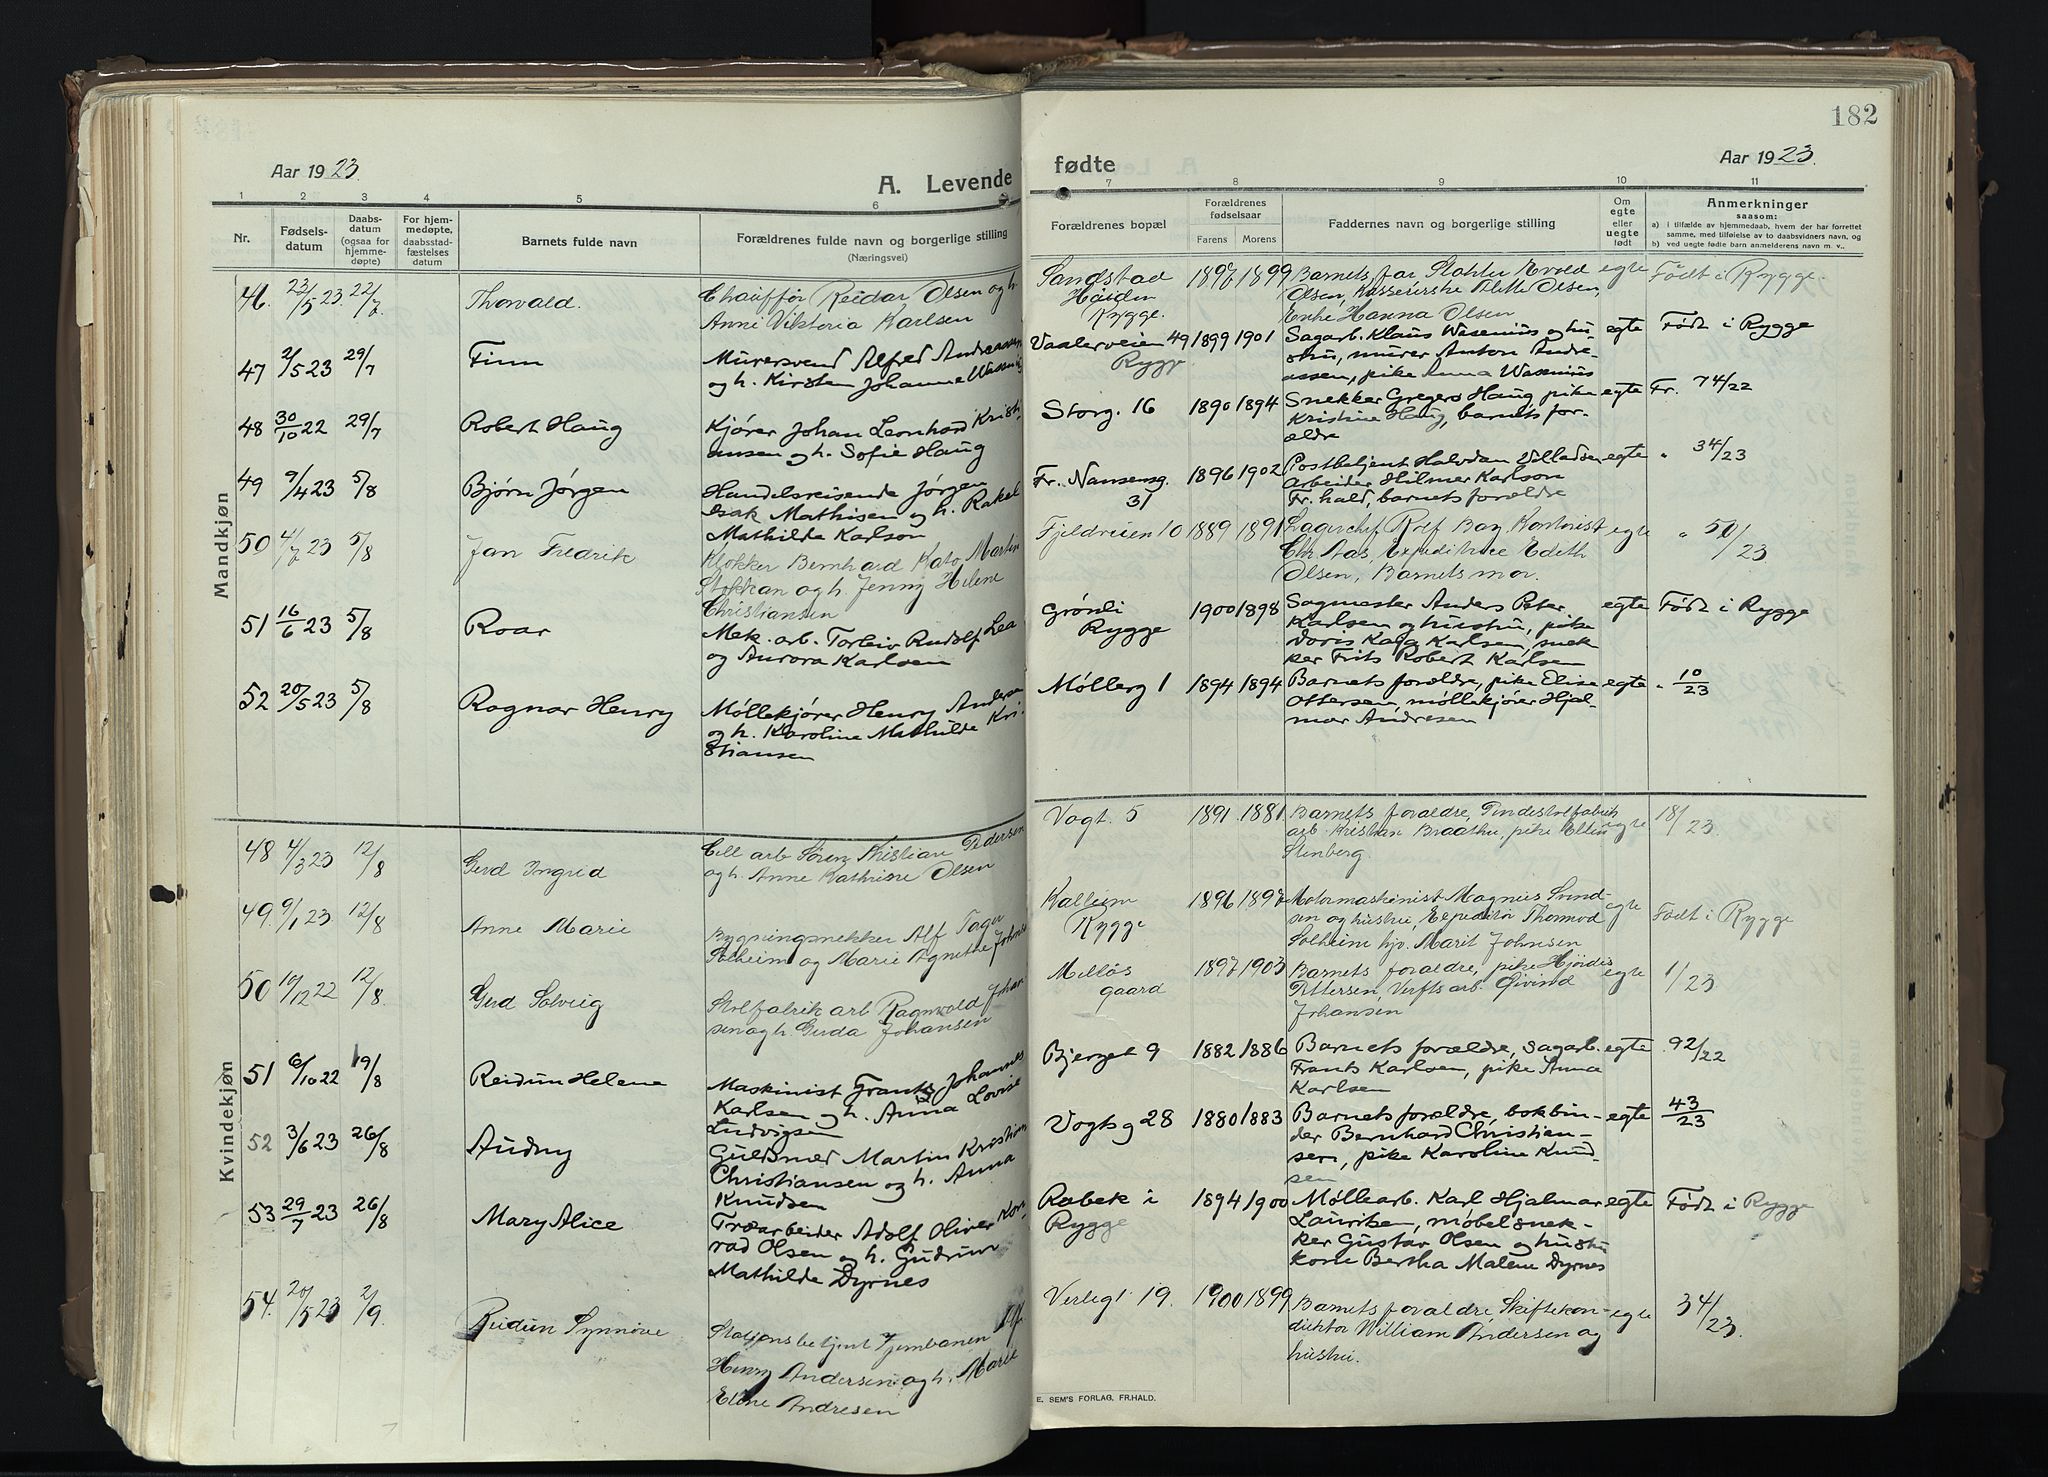 182
Aar 1923.
A. Levende
fødte
Aar 1923.
1 2 3 4 5 6 7 8 9 10 11
Nr.
Fødsels-
datum
Daabs-
datum
(ogsaa for
hjemme-
døpte)
For hjem-
medøpte,
daabsstad-
fæstelses
datum
Barnets fulde navn
Forældrenes fulde navn og borgerlige stilling
(Næringsvei)
Forældrenes bopæl
Forældrenes
fødselsaar
Farens Morens
Faddernes navn og borgerlige stilling
Om
egte
eller
uegte
født
Anmerkninger
saasom:
a) i tilfælde av hjemmedaab, hvem der har forrettet
samme, med tilføielse av to daabsvidners navn, og
b) ved uegte fødte barn anmelderens navn m. v..
Mandkjøn
46. 23/5 23. 22/7 Thorvald.
Chauffør Reidar Olsen og h.
Anne Viktoria Karlsen
Sandstad
Høiden
Rygge.
1897 1899
Barnets far
Olsen, Kassererske Olsen,
Enke Hanna Olsen
egte Født i Rygge.
47 2/5 23 29/7 Finn
Murersvend Alfred Andreassen
og h. Kirsten Johanne Wasenius
Vaalerveien 49
Rygge
1899 1901
Sagarb. Klaus Wasenius og hu-
stru, murer Anton Andre-
assen, pike Anna Wasenius
egte Født i Rygge
48 30/10 22 29/7 Robert Haug
Kjører Johan Leonhard Kristi-
ansen og h. Sofie Haug
Storg. 16 1890 1894
Snekker Gregers Haug, pike
Kristine Haug, barnets for-
ældre
egte Fr. 74/22
49 9/4 23 5/8 Bjørn Jørgen
Handelsreisende Jørgen
Isak Mathisen og h. Rakel
Mathilde Karlson
Fr. Nansensg.
31
1896 1902
Postbetjent Halvdan Villadsen
arbeider Hilmer Karlson
Fr.hald, barnets forældre
egte " 34/23
50 4/7 23 5/8 Jan Fredrik
Klokker Bernhard Kato Martin
Stokkan og h. Jenny Helene
Christiansen
Fjeldveien 10 1889 1891
Lagerchef Rolf Bay, Kontorist
Chr Aas, Expeditrice Edith
Olsen, Barnets mor.
egte " 50/23
51 16/6 23 5/8 Roar
Mek. arb. Torleiv Rudolf Lea
og Aurora Karlsen
Grønli
Rygge
1900 1898
Sagmester Anders Peter
Karlsen og hustru, pike
Doris Kagg Karlsen, snek
ker Frits Robert Karlsen
egte Født i Rygge
52 20/5 23 5/8 Ragnar Henry
Møllekjører Henry Andersen
og h. Karoline Mathilde Kri-
stiansen
Møllerg 1 1894 1894
Barnets forældre, pike Elise
Ottersen, møllekjører Hjal-
mar Andresen
egte " 10/23
Kvindekjøn
48 4/3 23 12/8 Gerd Ingrid
Cell arb Søren Kristian Pedersen
og h. Anne Kathrine Olsen
Vogt. 5 1891 1881
Barnets forældre, Pindestolfabrik
arb. Kristian Braathe, pike Ellen
Stenberg.
egte 18/23.
49. 9/1 23 12/8 Anne Marie
Bygningsnekker Alf Tager
Solheim og Marie Agnethe Johnsen
Kalleim
Rygge
1896 1897
Motormaskinist Magnus Svend-
sen og hustru, Expeditør Thormod
Solheim hjv. Marit Johnsen
egte Født i Rygge
50 19/12 22 12/8. Gerd Solveig
Stolfabrik arb Ragnvald Johan
sen og h. Gerda Johansen
Melløs
gaard
1897 1903
Barnets forældre, pike Hjørdis
Pettersen, Verfts arb. Øivind
Johansen
egte 1/23
51 6/10 22 19/8 Reidun Helene
Maskinist Frants Johannes
Karlsen og h. Anna Lovise
Ludvigsen
Bjerget 9 1882 1886
Barnets forældre, sagarb.
Frants Karlsen, pike Anna
Karlsen
egte 92/22
52 3/6 23 26/8 Audny
Guldsmed Martin Kristian
Christiansen og h. Anna
Knudsen
Vogtsg 28 1880 1883
Barnets forældre, bokbin-
der Bernhard Christian-
sen, pike Karoline Knud-
sen
egte 43/23
53 29/7 23 26/8 Mary Alice
Træarbeider Adolf Oliver Kon-
rad Olsen og h. Gudrun
Mathilde Dyrnes
Rabek i
Rygge
1894 1900
Møllearb. Karl Hjalmar
Lauritsen, møbelsnek-
ker Gustav Olsen og hustru
kone Bertha Malene Dyrnes
egte Født i Rygge
54. 20/5 23 2/9. Reidun Synnøve
Stationsbetjent Jernbanen Alf
Henry Andersen og h. Marie
Eline Andresen
Verlegt 19. 1900 1899
Barnets forældre, Skiftekon-
duktør William Andersen og
hustru.
egte 34/23.
E. SEM'S FORLAG. FR.HALD.